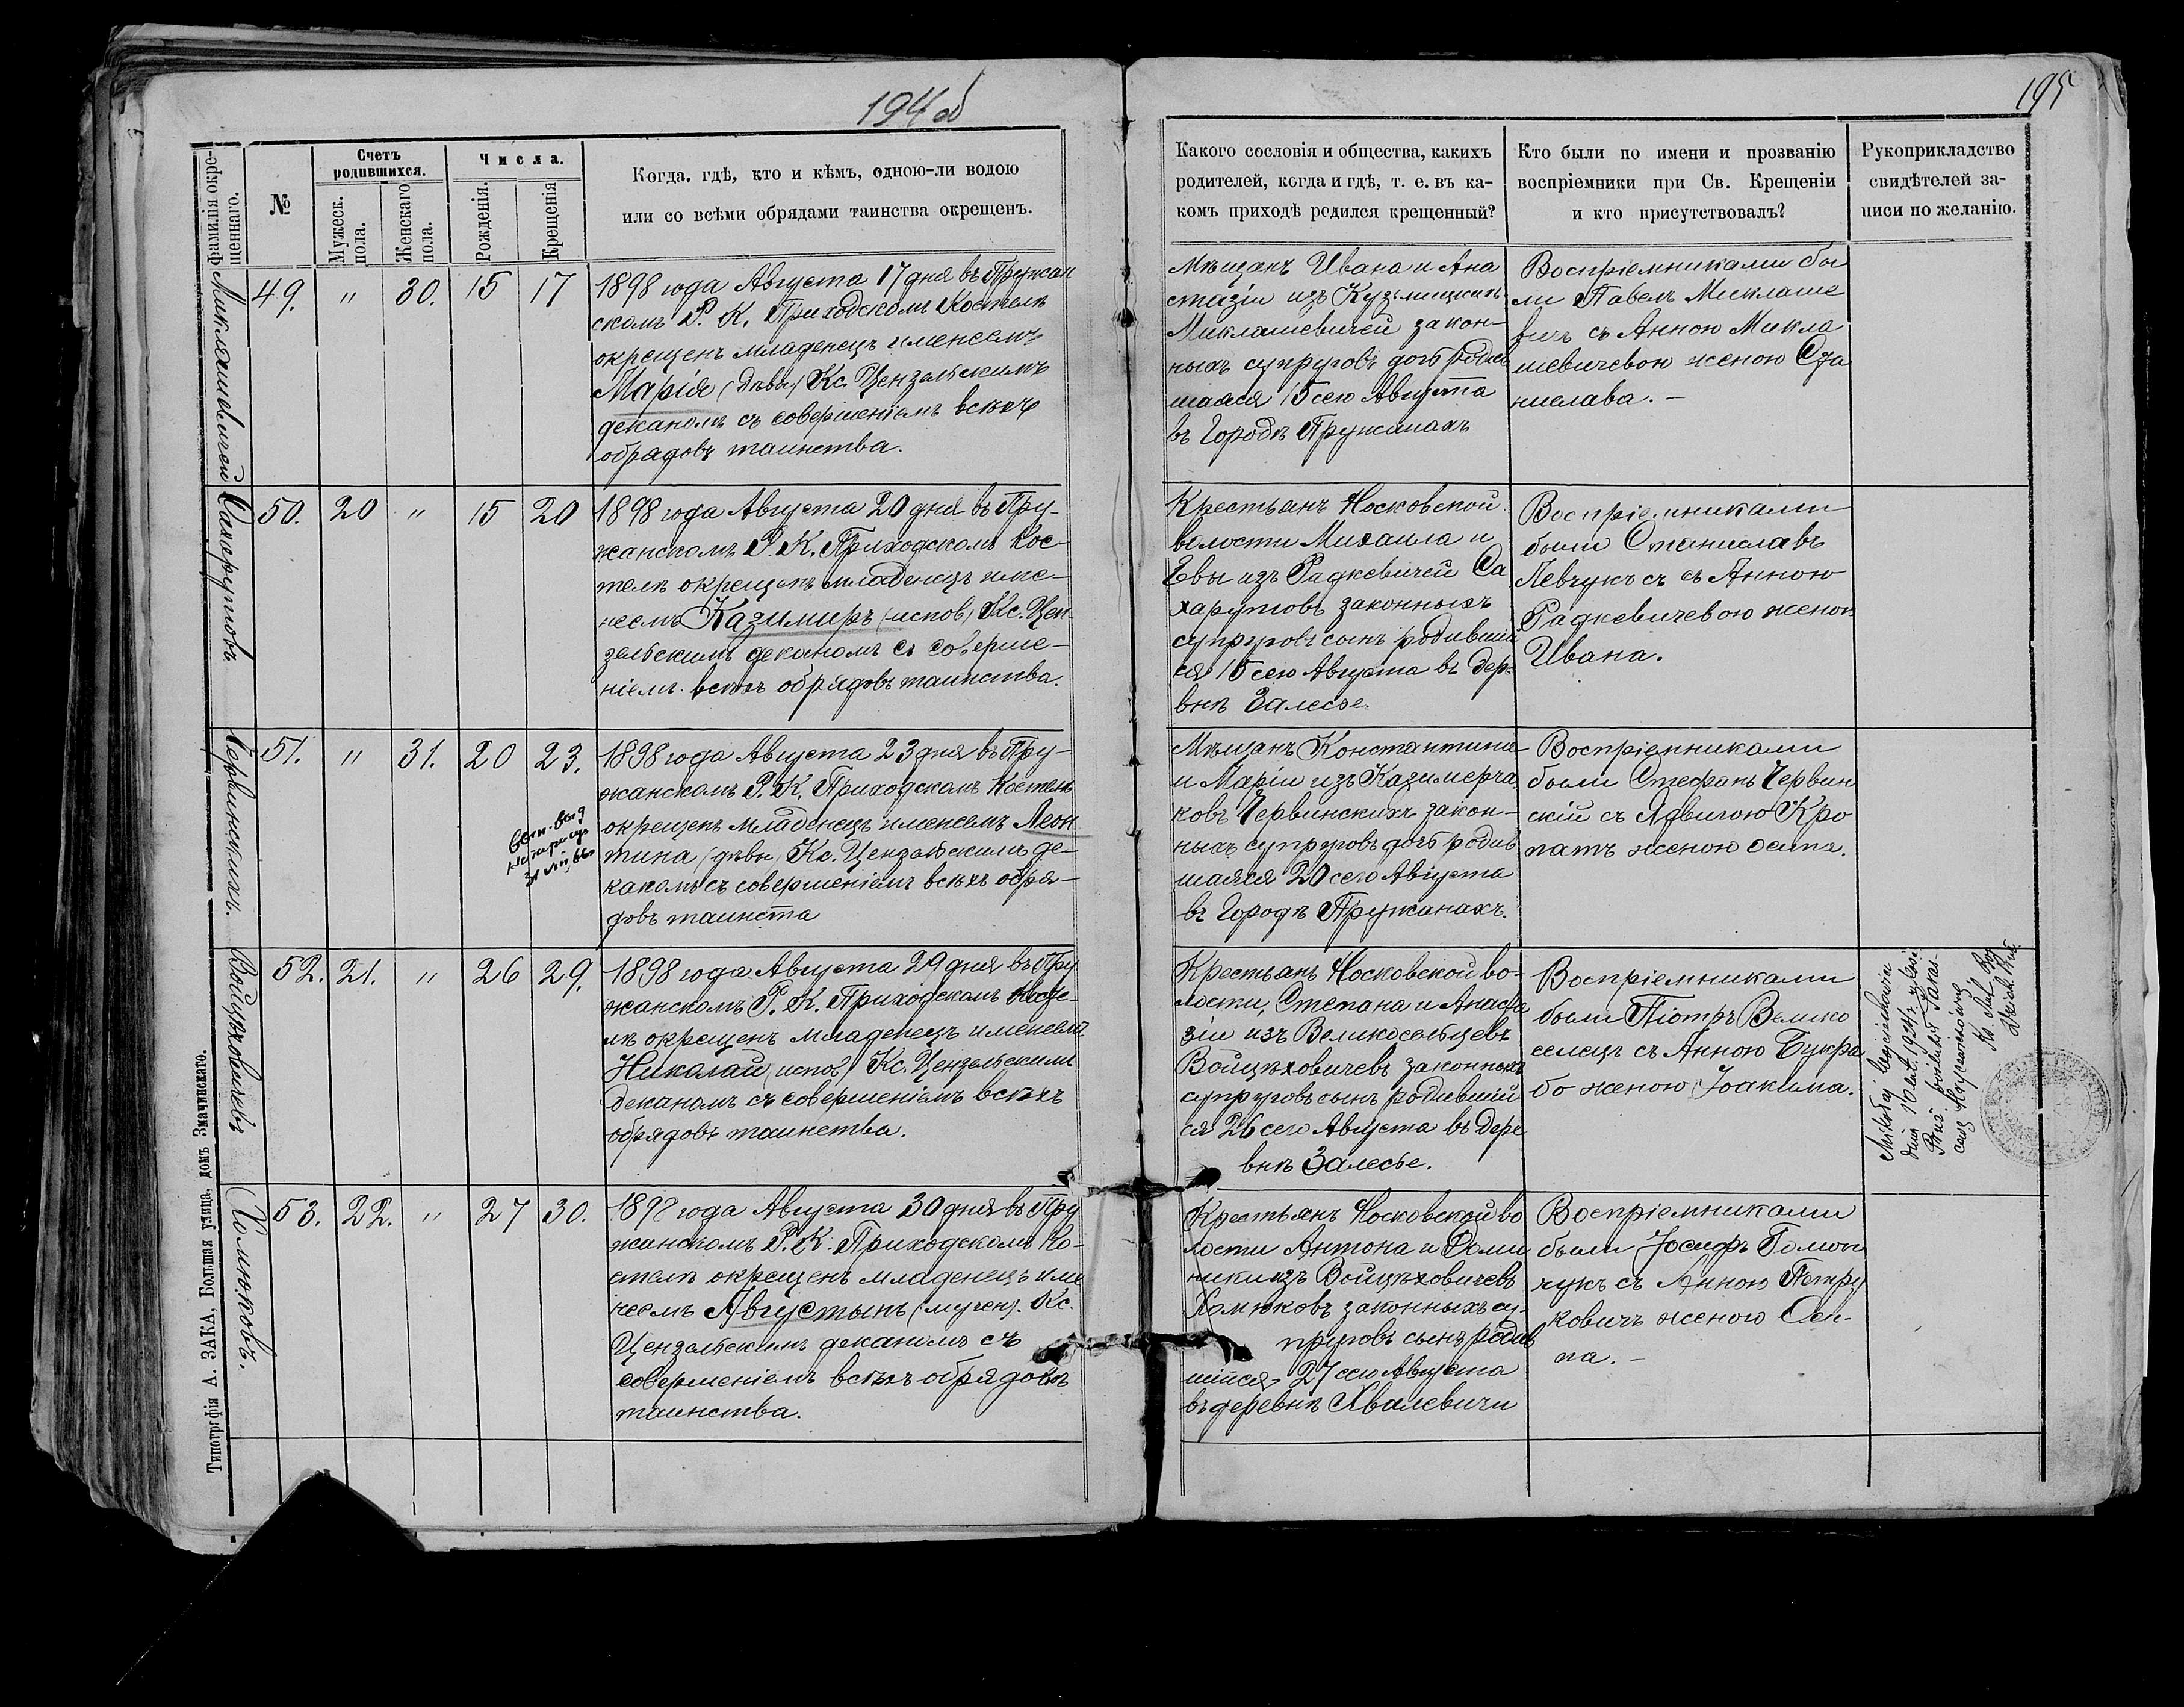 194 об
195
Фамилія окре-
щеннаго.
№
Счетъ
родившихся.
Мужеск.
пола.
Женскаго
пола.
Числа.
Рожденія.
Крещенія
Когда, гдѣ, кто и кѣмъ, одною-ли водою
или со всѣми обрядами таинства окрещенъ.
Какого сословія и общества, какихъ
родителей, когда и гдѣ, т. е. въ ка-
комъ приходѣ родился крещенный?
Кто были по имени и прозванію
воспріемники при Св. Крещеніи
и кто присутствовалъ?
Рукоприкладство
свидѣтелей за-
писи по желанію.
Миклашевичей
49. " 30. 15 17
1898 года Августа 17 дня въ Пружан
скомъ Р. К. Приходскомъ Костелѣ
окрещенъ младенецъ именемъ
Марія (дѣвы) Кс. Цензальскимъ
деканомъ съ совершеніемъ всѣхъ
обрядовъ таинства.
Мѣщанъ Ивана и Ана
стазіи изъ
Миклашевичей закон-
ныхъ супруговъ дочь родив
шаяся 15 сего Августа
въ Городѣ Пружанахъ
Воспріемниками бы
ли Павелъ Миклаше
вичъ съ Анною Микла
шевичевою женою Ста
нислава. —
Сахарутовъ
50. 20 " 15 20
1898 года Августа 20 дня въ Пру-
жанскомъ Р. К. Приходскомъ Кос-
телѣ окрещенъ младенецъ име-
немъ Казимиръ (испов) Кс. Цен-
зальскимъ деканомъ съ соверше-
ніемъ всѣхъ обрядовъ таинства.
Крестьянъ Носковской
волости Михаила и
Евы изъ Радкевичей Са
харутовъ законныхъ
супруговъ сынъ родившій
ся 15 сего Августа въ дер-
внѣ Залесье
Воспріемниками
были Станиславъ
Левчукъ съ съ Анною
Радкевичевою женою
Ивана.
Червинскихъ.
51. " 31. 20 23.
1898 года Августа 23 дня въ Пру-
жанскомъ Р. К. Приходскомъ Костелѣ
окрещенъ младенецъ именемъ Леон
тина (дѣвы) Кс. Цензальскимъ де-
каномъ съ совершеніемъ всѣхъ обря-
довъ таинста
Мѣщанъ Константина
и Маріи изъ Казимерча
ковъ Червинскихъ закон-
ныхъ супруговъ дочь родив
шаяся 20 сего Августа
въ Городѣ Пружанахъ.
Воспріемниками
были Стефанъ Червин
скій съ Ядвигою Кро
патъ женою Осипа.
Войцѣховичевъ
52. 21. " 26 29.
1898 года Августа 29 дня въ Пру
жанскомъ Р. К. Приходскомъ Косте-
лѣ окрещенъ младенецъ именемъ
Николай (испов) Кс. Цензальскимъ
деканомъ съ совершеніемъ всѣхъ
обрядовъ таинства.
Крестьянъ Носковской во-
лости, Степана и Анаста
зіи изъ Великосельцевъ
Войцѣховичевъ законныхъ
супруговъ сынъ родившій
ся 26 сего Августа въ дере
внѣ Залесье.
Воспріемниками
были Піотръ Велико
селецъ съ Анною Букра
бо женою Іоакима.
Mikołaj Wojciechowicz
Хомюковъ.
53. 22. " 27 30.
1898 года Августа 30 дня въ Пру
жанскомъ Р. К. Приходскомъ Ко-
стелѣ окрещенъ младенецъ име
немъ Августынъ (мучен). Кс.
Цензальскимъ деканомъ съ
совершеніемъ всѣхъ обрядовъ
таинства.
Крестьянъ Носковской во
лости Антона и Доми
ники изъ Войцѣховичевъ
Хомюковъ законныхъ су-
пруговъ сынъ родив
шійся 27 сего Августа
въ деревнѣ Хвалевичи
Воспріемниками
были Іосифъ Гомон
чукъ съ Анною Петру
ковичъ женою Оси-
па. —
Типографія А. ЗАКА, Большая улица, домъ Змачинскаго.